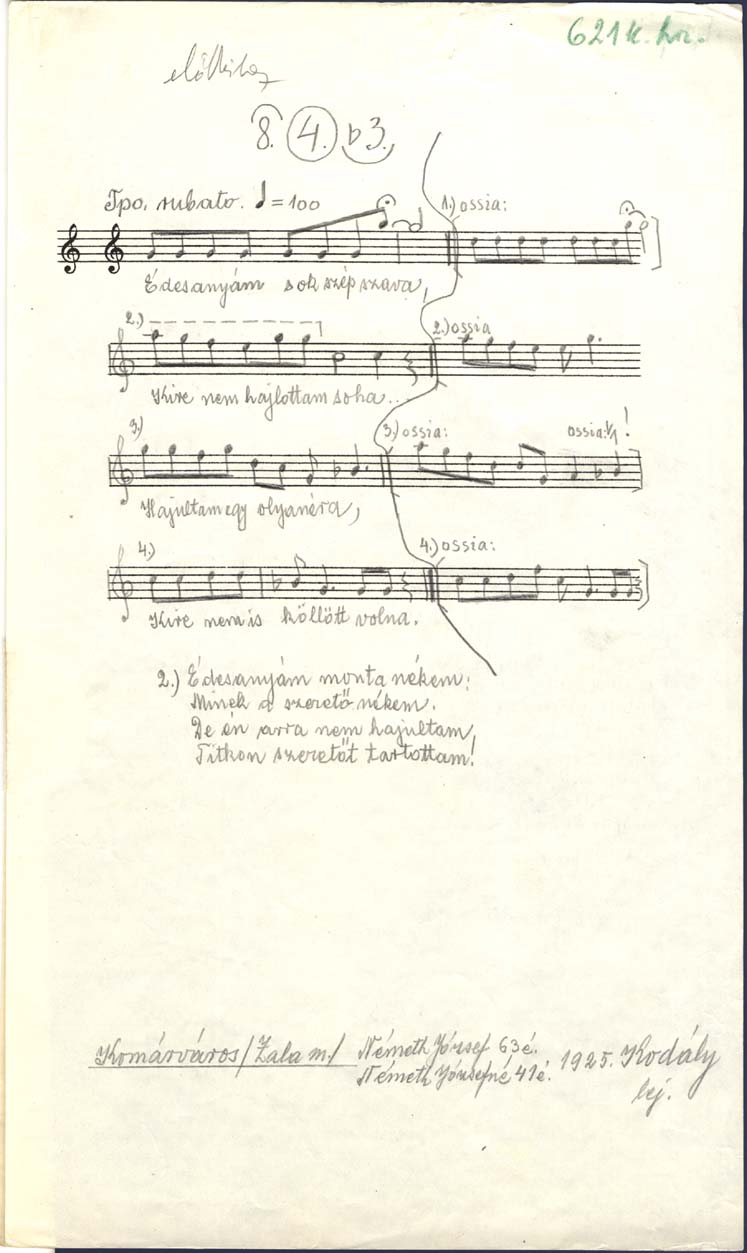 621 k. hr.
8. 4. b3.
Tpo. rubato. ♩=100
1.) ossia:
Édesanyám sok szép szava,
2.)
2.) ossia
Kire nem hajlottam soha...
3.)
3.) ossia:
ossia: 1/1!
Hajultam egy olyanéra,
4.)
4.) ossia:
Kire nem is köllött volna.
2.) Édesanyám monta nékem:
Minek a szerető nékem.
De én arra nem hajultam,
Titkon szeretőt tartottam!
Komárváros/Zala m./
Németh József 63é.
Németh Józsefné 41é.
1925. Kodály
lej.